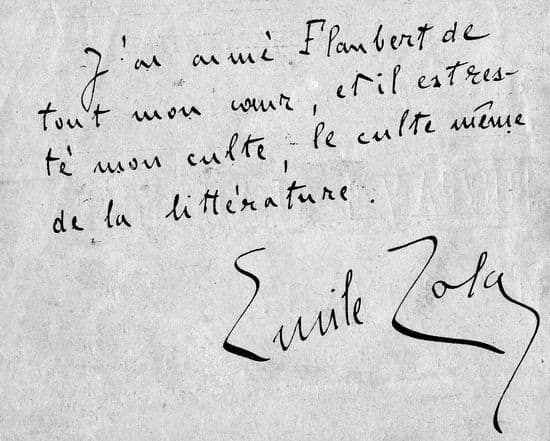 J'ai aimé Flaubert de
tout mon cœur, et il est res-
té mon culte, le culte même
de la littérature.
Emile Zola